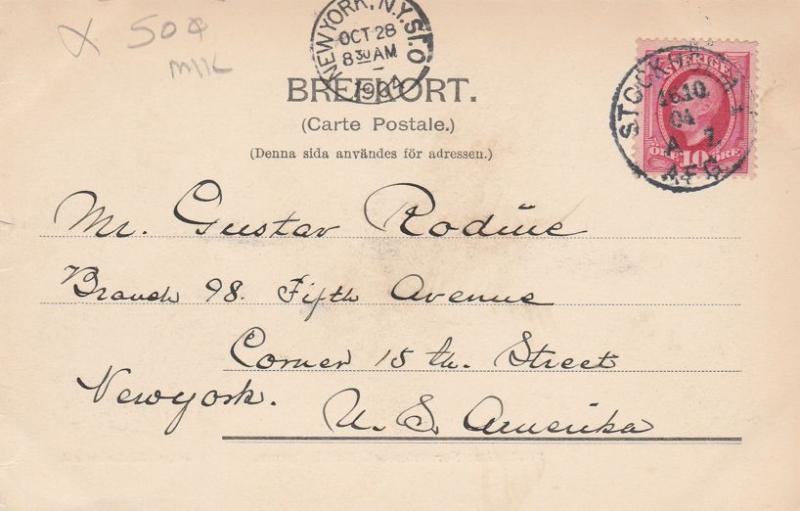 50¢
NEW YORK, N.Y. STA. O
OCT 28
8 30 AM
1904
BREFKORT.
(Carte Postale.)
(Denna sida användes för adressen.)
SVERIGE
10 ÖRE
STOCKHOLM 1
10
04
A 7
AFG
Mr. Gustav Rodine
Branch 98. Fifth Avenue
Corner 15 th. Street
Newyork.
U. S. Amerika